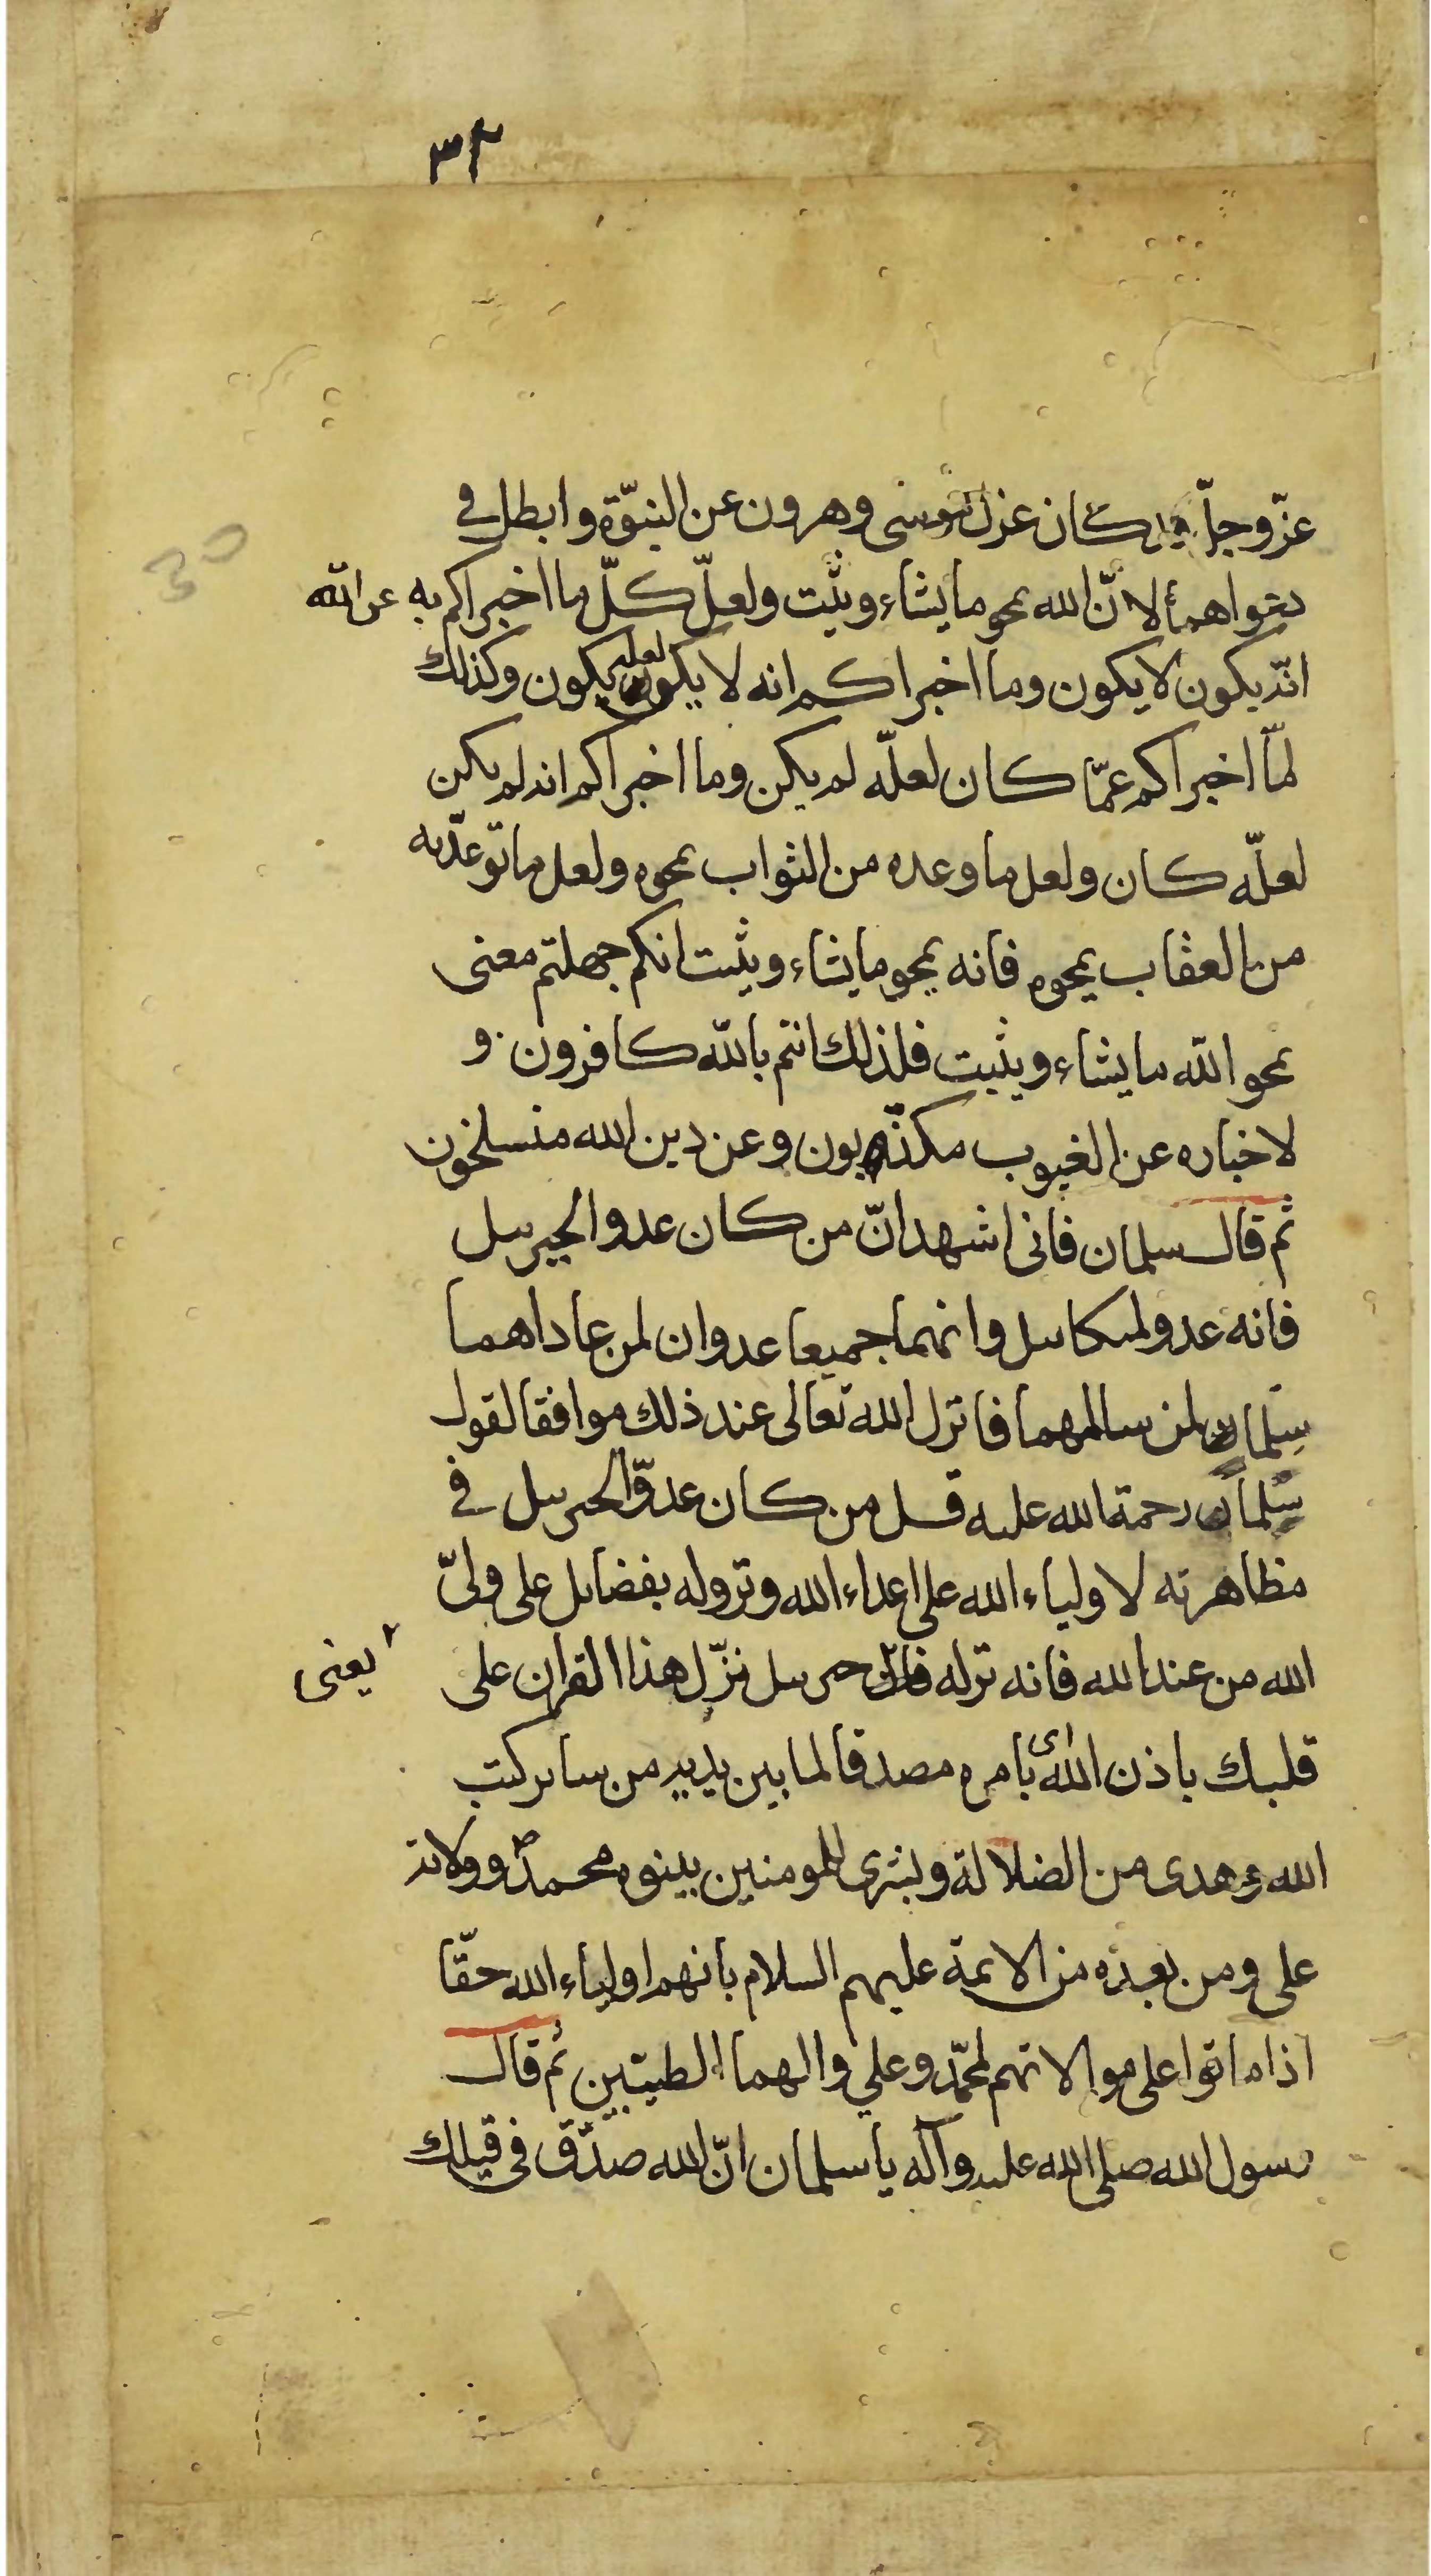 ٣٢
30
عزّ وجلّ قد كان عزل موسى وهرون عن النبوّة وابطل في
دعواهما لانّ الله يمحو ما يشاء ويثبت ولعلّ كلّ ما اخبراكم به عن الله
انّه يكون لا يكون وما اخبراكم انه لا يكون لعله يكون وكذلك
لمّا اخبراكم عمّا كان لعلّه لم يكن وما اخبراكم انه لم يكن
لعلّه كان ولعل ما وعده من الثواب يمحوه ولعل ما توعّد به
من العقاب يمحوه فانه يمحو ما يشاء ويثبت انكم جهلتم معنى
يمحو الله ما يشاء ويثبت فلذلك انتم بالله كافرون و
لاخباره عن الغيوب مكذّبون وعن دين الله منسلخون
ثم قال سلمان فانى اشهد انّ من كان عدوا لجبرىيل
فانه عدو لميكاىيل وانهما جميعا عدوان لمن عاداهما
سلمان لمن سالمهما فانزل الله تعالى عند ذلك موافقا لقول
سلمان رحمة الله عليه قل من كان عدوّا لجبرىيل فى
مظاهرته لاولياء الله على اعداء الله ونزوله بفضايل على ولىّ
الله من عند الله فانه نزله فان جبرىيل نزّل هذا القران على
يعنى
قلبك باذن الله اى بامره مصدقا لما بين يديه من ساير كتب
الله وهدى من الضلالة وبشرى للمومنين بنبوة محمد ص وولاية
على ومن بعده من الائمة عليهم السلام بانهم اولياء الله حقّا
اذا ماتوا على موالاتهم لمحمّد وعلي والهما الطيبين ثم قال
رسول الله صلى الله عليه وآله يا سلمان انّ الله صدّق فى قيلك